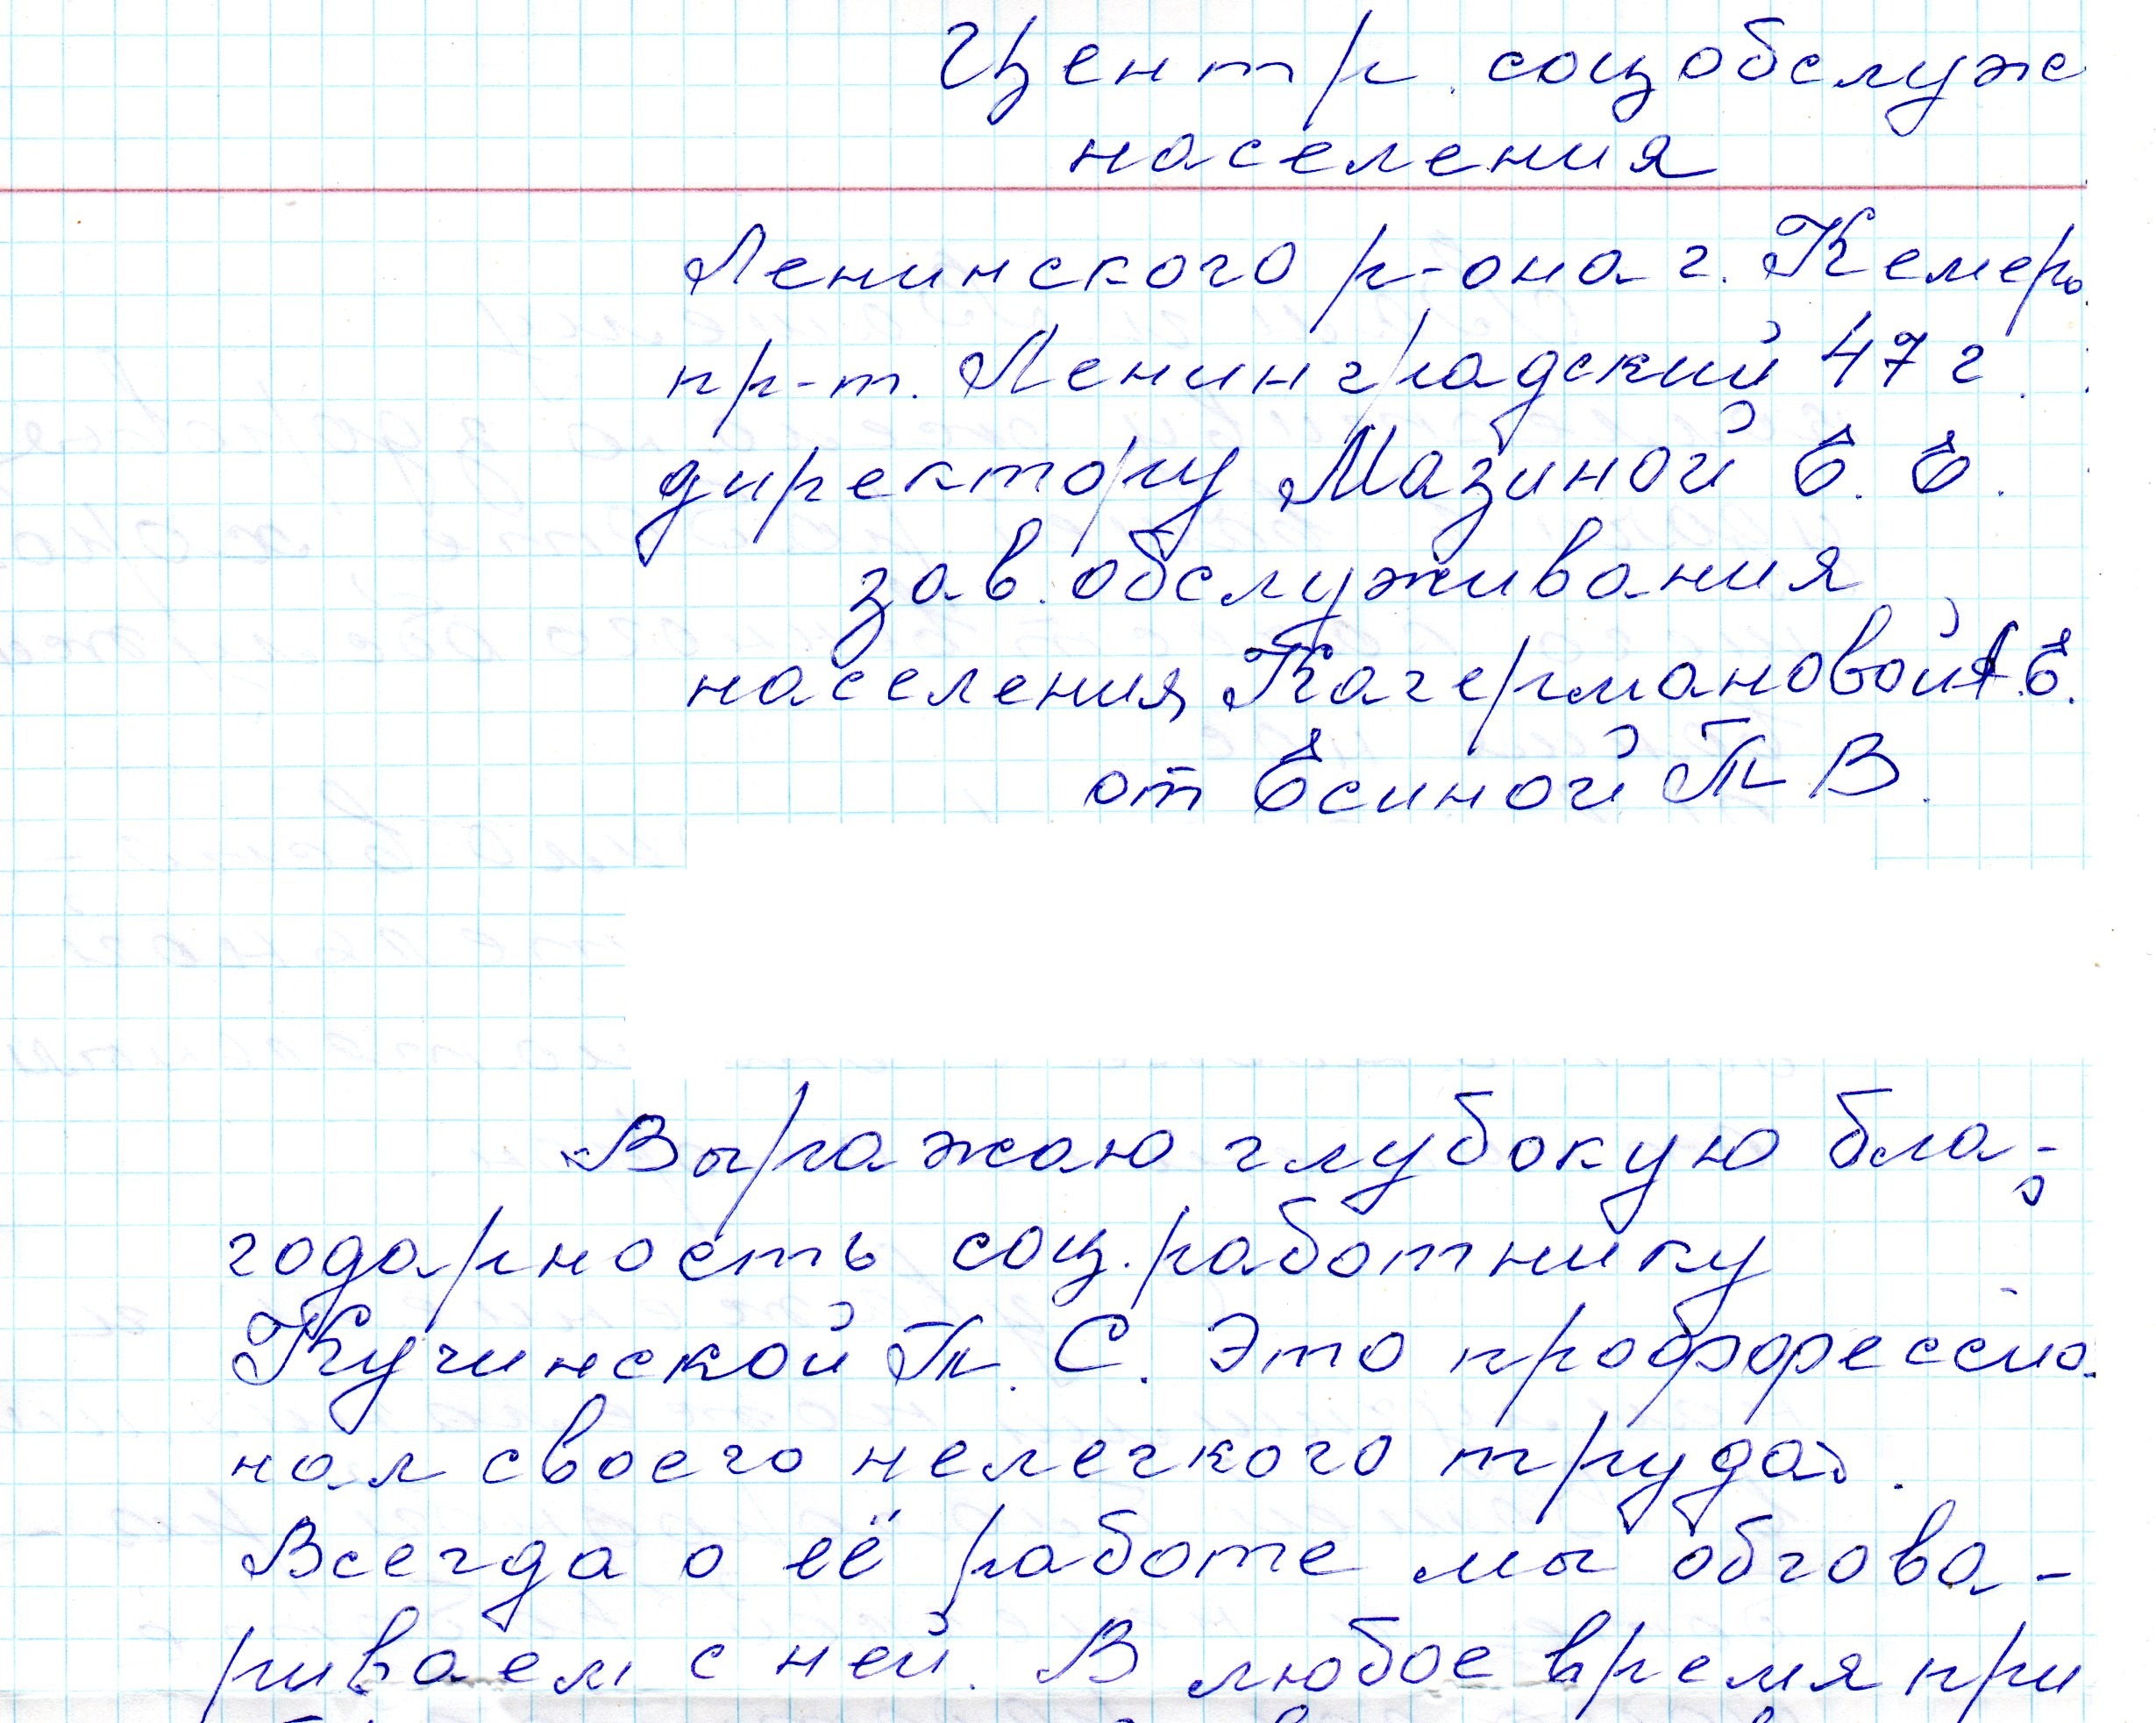 Центр соцобслуж
населения
Ленинского р-она г. Кемеро
пр-т. Ленинградский 47 г
директору Мазиной Е. Е.
зав. обслуживания
населения Кагермановой А.Е.
от Есиной Т В.
Выражаю глубокую бла-
годарность соц.работнику
Кучинской Т. С. Это профессио-
нал своего нелегкого труда.
Всегда о её работе мы обгова-
риваем с ней. В любое время при